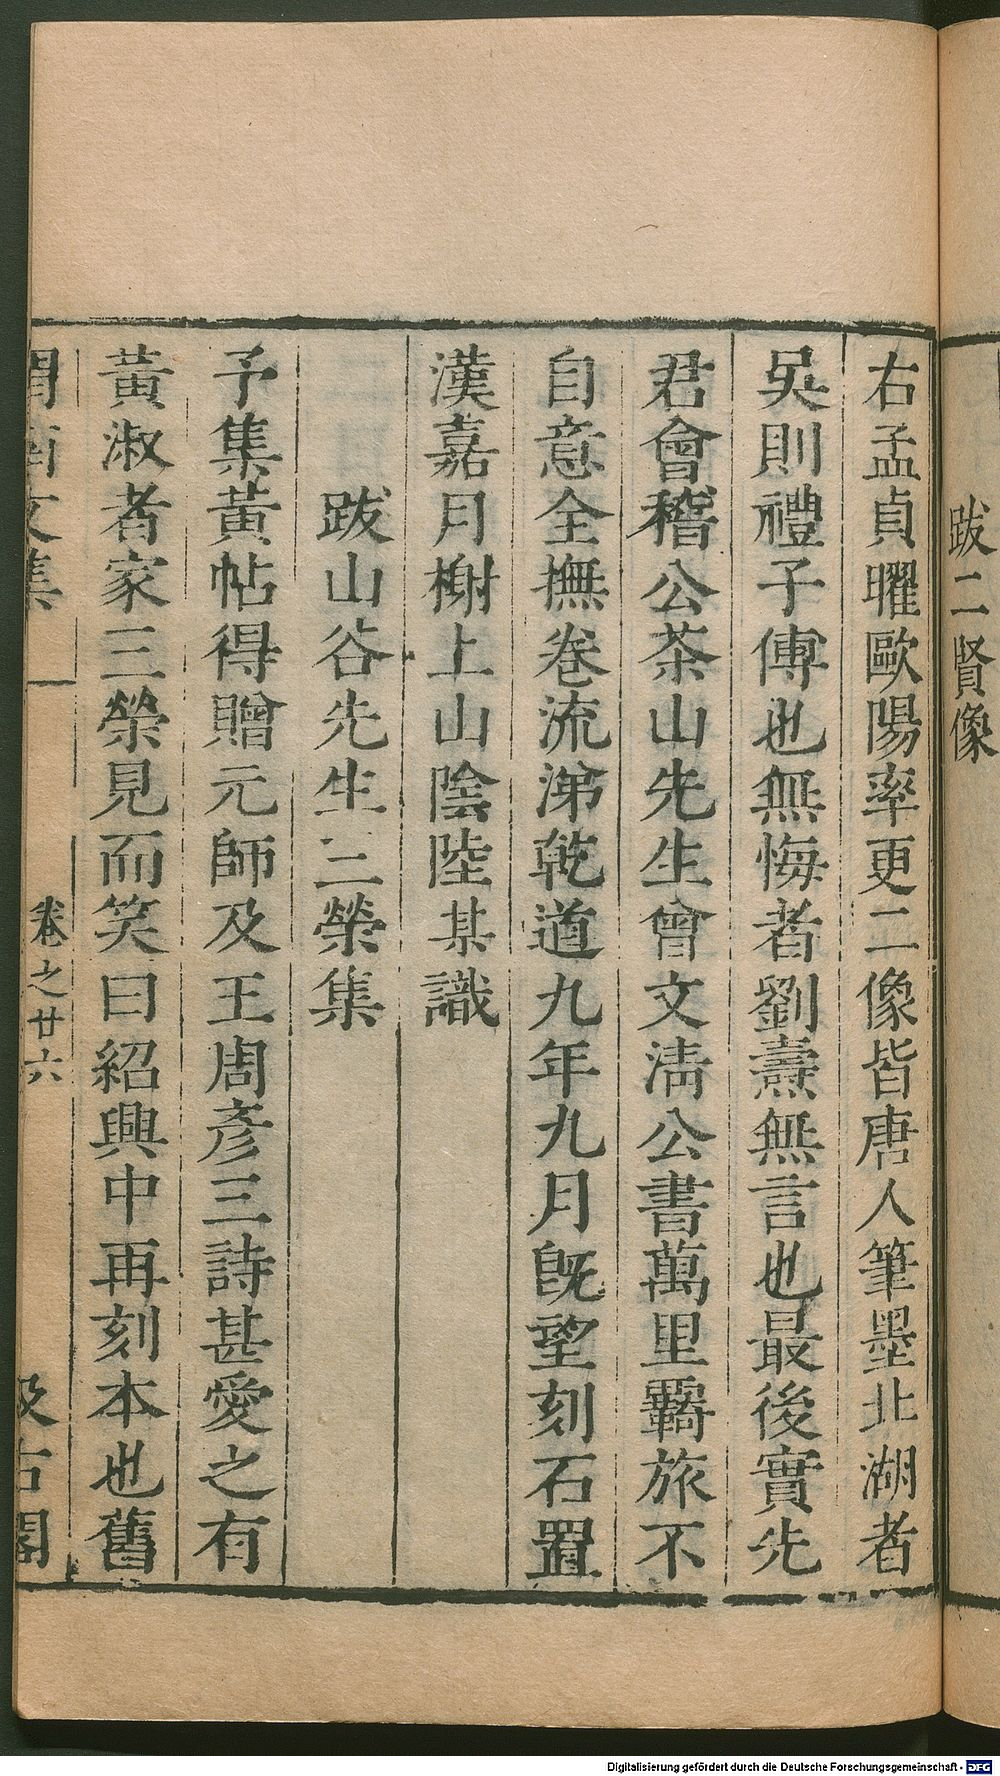 跋二賢像
右孟貞曜歐陽率更二像皆唐人筆墨北湖者
吳則禮子傅也無悔者劉燾無言也最後實先
君會稽公茶山先生曾文淸公書萬里覊旅不
自意全撫卷流涕乾道九年九月旣望刻石置
漢嘉月榭上山陰陸某識
跋山谷先生三榮集
予集黃帖得贈元師及王周彥三詩甚愛之有
黃淑者家三榮見而笑曰紹興中再刻本也舊
渭南文集
卷之廿六
汲古閣
Digitalisierung gefördert durch die Deutsche Forschungsgemeinschaft - DFG